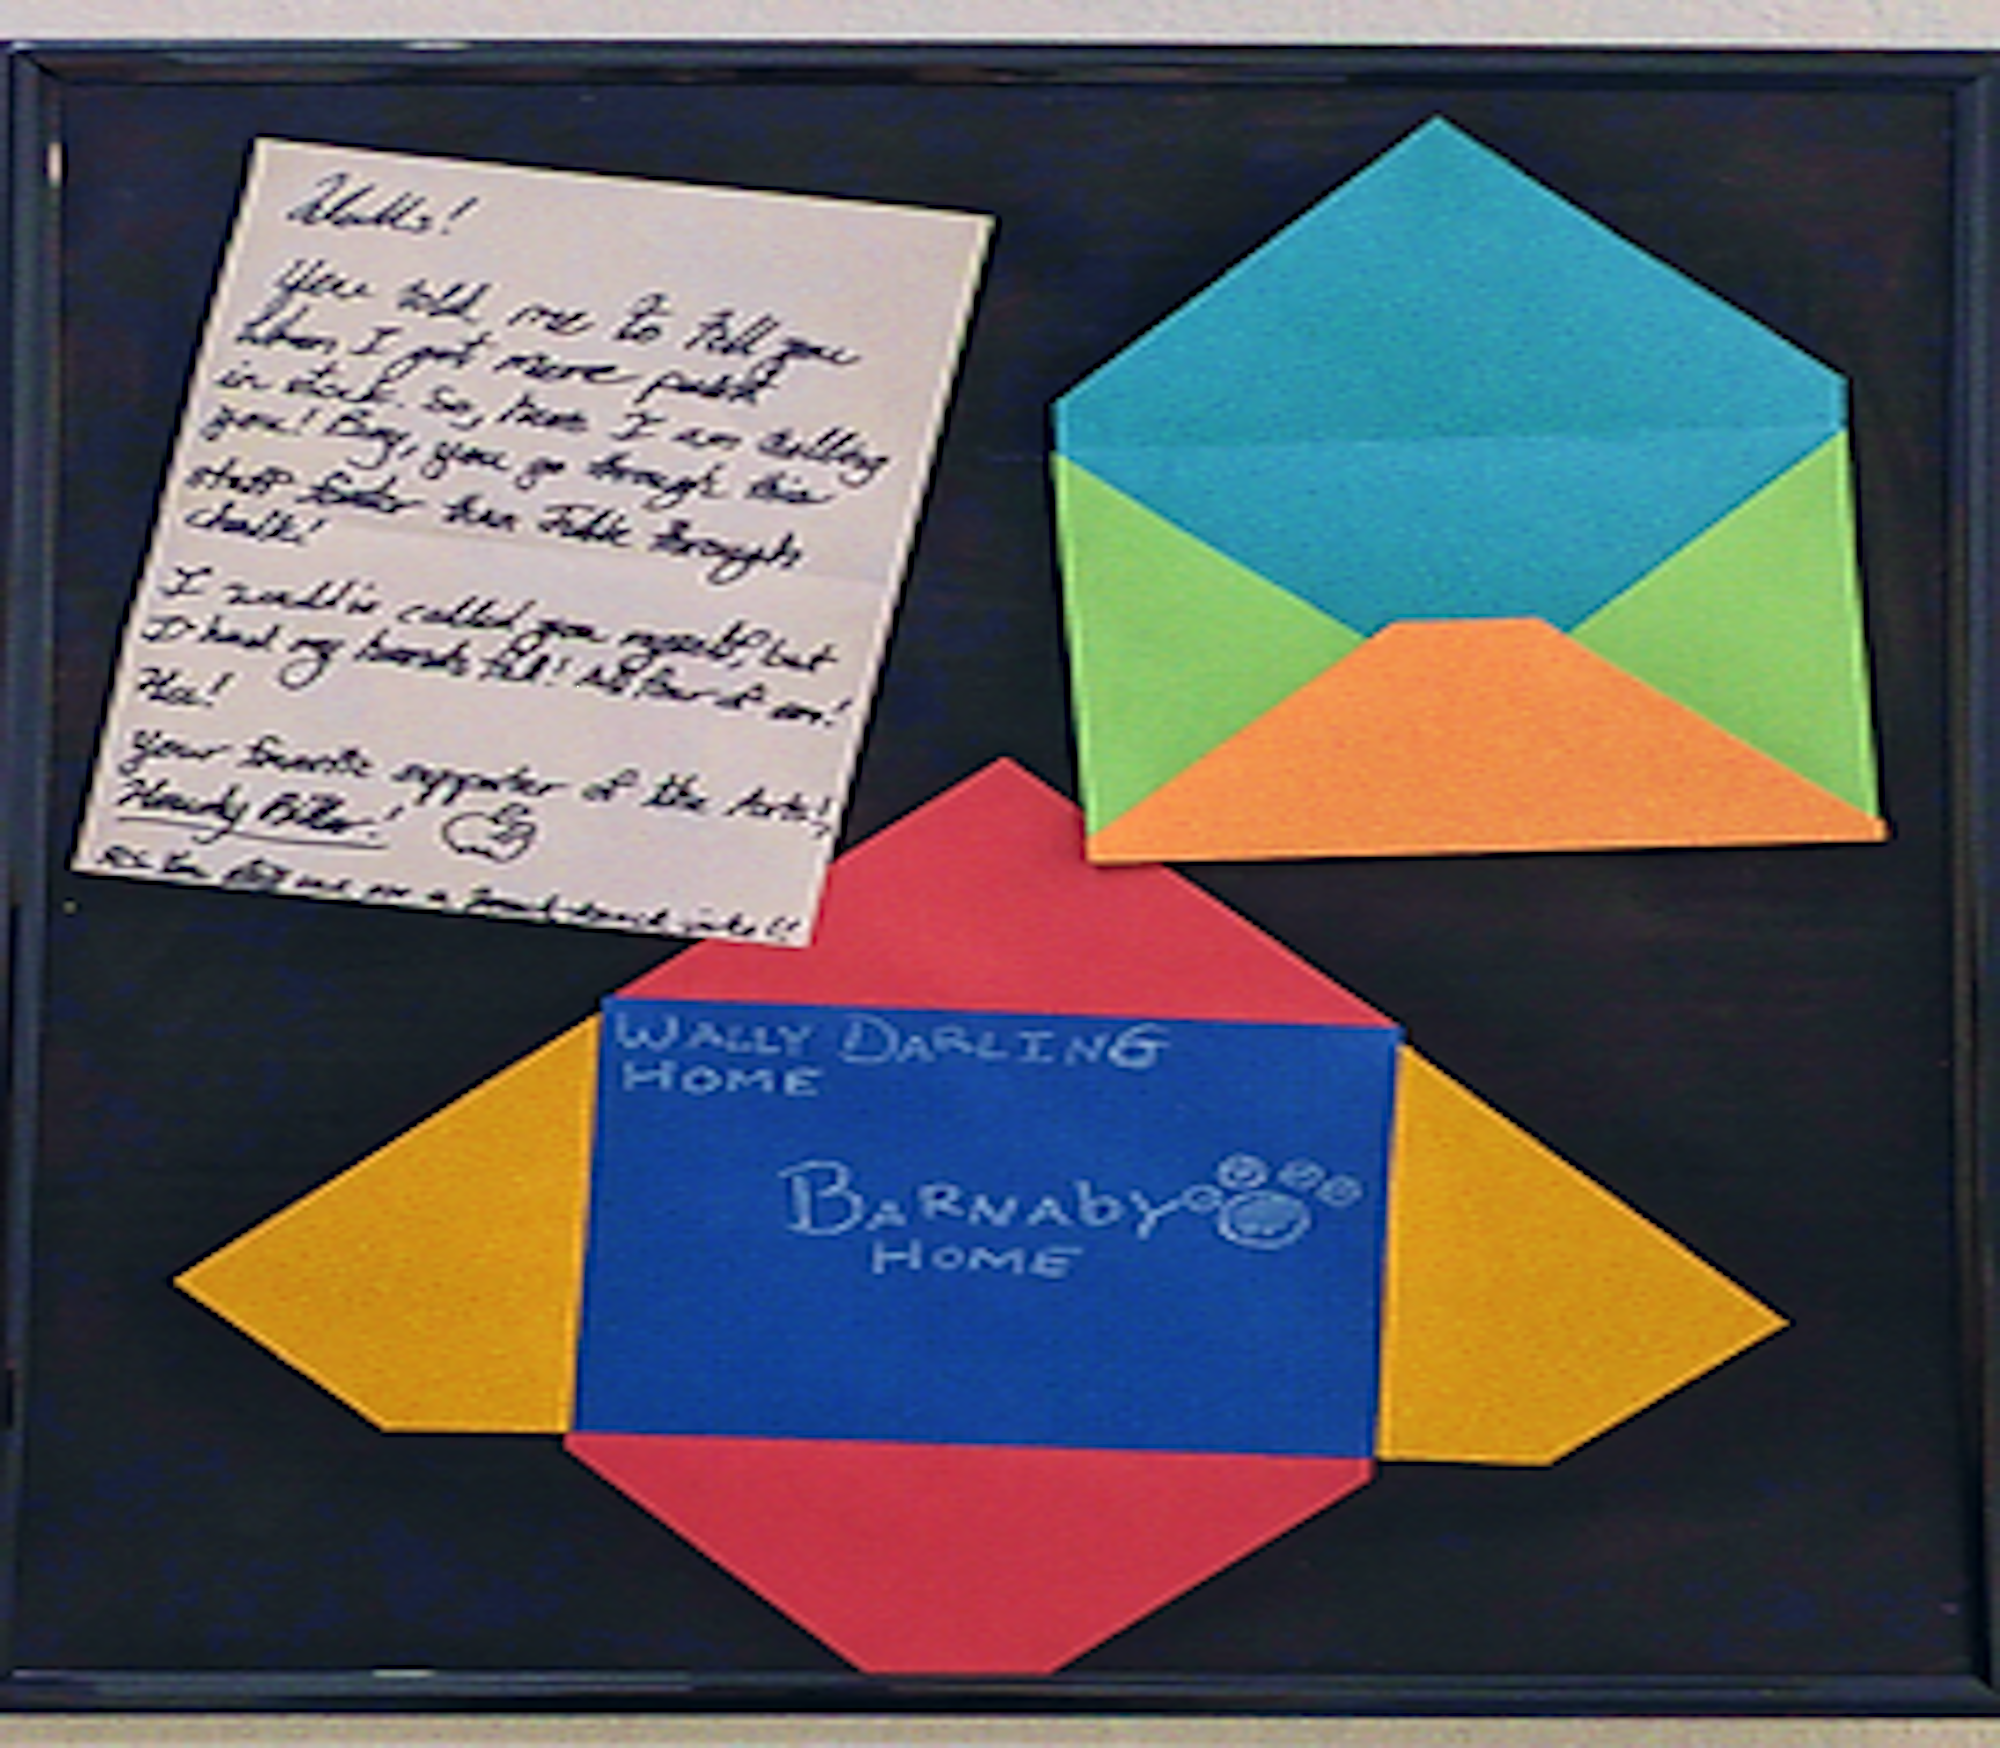 Walls!
You told me to tell you
when I got more paint
in stock. So, here I am calling
you! Boy, you go through this
stuff faster than Julie through
chalk!
I would've called you myself, but
I had my hands full! All four of em!
Hee!
Your favorite supporter of the Arts!,
Howdy Pillar!
me a knock-knock joke!!
WALLY DARLING
HOME
BARNABY
HOME